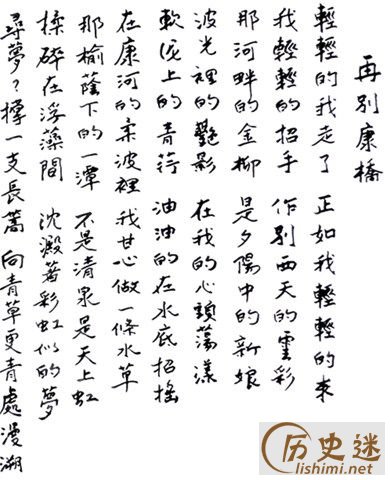 再別康橋
輕輕的我走了 正如我輕輕的來
我輕輕的招手 作別西天的雲彩
那河畔的金柳 是夕陽中的新娘
波光裡的豔影 在我的心頭蕩漾
軟泥上的青荇 油油的在水底招搖
在康河的柔波裡 我甘心做一條水草
那榆蔭下的一潭 不是清泉是天上虹
揉碎在浮藻間 沈澱著彩虹似的夢
尋夢?撐一支長篙 向青草更青處漫溯
历史迷
lishimi.net